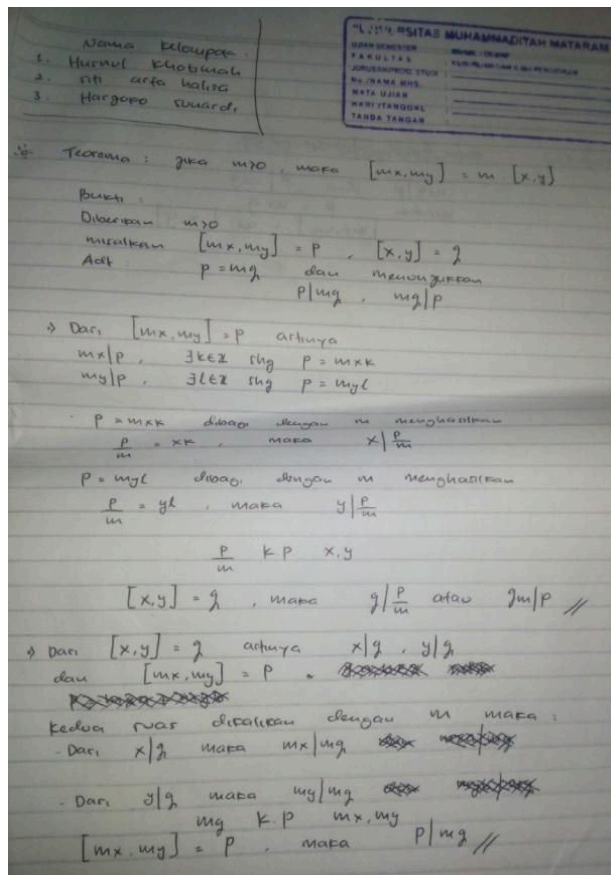 Nama kelompok
1. Husnul Khotimah
2. Siti arfa haliza
3. Hargopo sunardi
UNIVERSITAS MUHAMMADIYAH MATARAM
UJIAN SEMESTER
FAKULTAS
JURUSAN/PROG. STUDI
No./NAMA MHS.
MATA UJIAN
HARI/TANGGAL
TANDA TANGAN
Teorema : jika m>0, maka [mx,my] = m [x,y]
Bukti :
Diberikan m>0
misalkan [mx,my] = p , [x,y] = g
Adt p = mg dan menunjukkan
p|mg , mg|p
→ Dari [mx,my] = p artinya
mx|p , ∃k∈z shg p = mxk
my|p , ∃l∈z shg p = myl
- p = mxk dibagi dengan m menghasilkan
p/m = xk , maka x|p/m
p = myl dibagi dengan m menghasilkan
p/m = yl , maka y|p/m
p/m k p x,y
[x,y] = g , maka g|p/m atau gm|p //
→ Dari [x,y] = g artinya x|g , y|g
dan [mx,my] = p .
kedua ruas dikalikan dengan m maka :
- Dari x|g maka mx|mg
- Dari y|g maka my|mg
mg k.p mx,my
[mx,my] = p , maka p|mg //